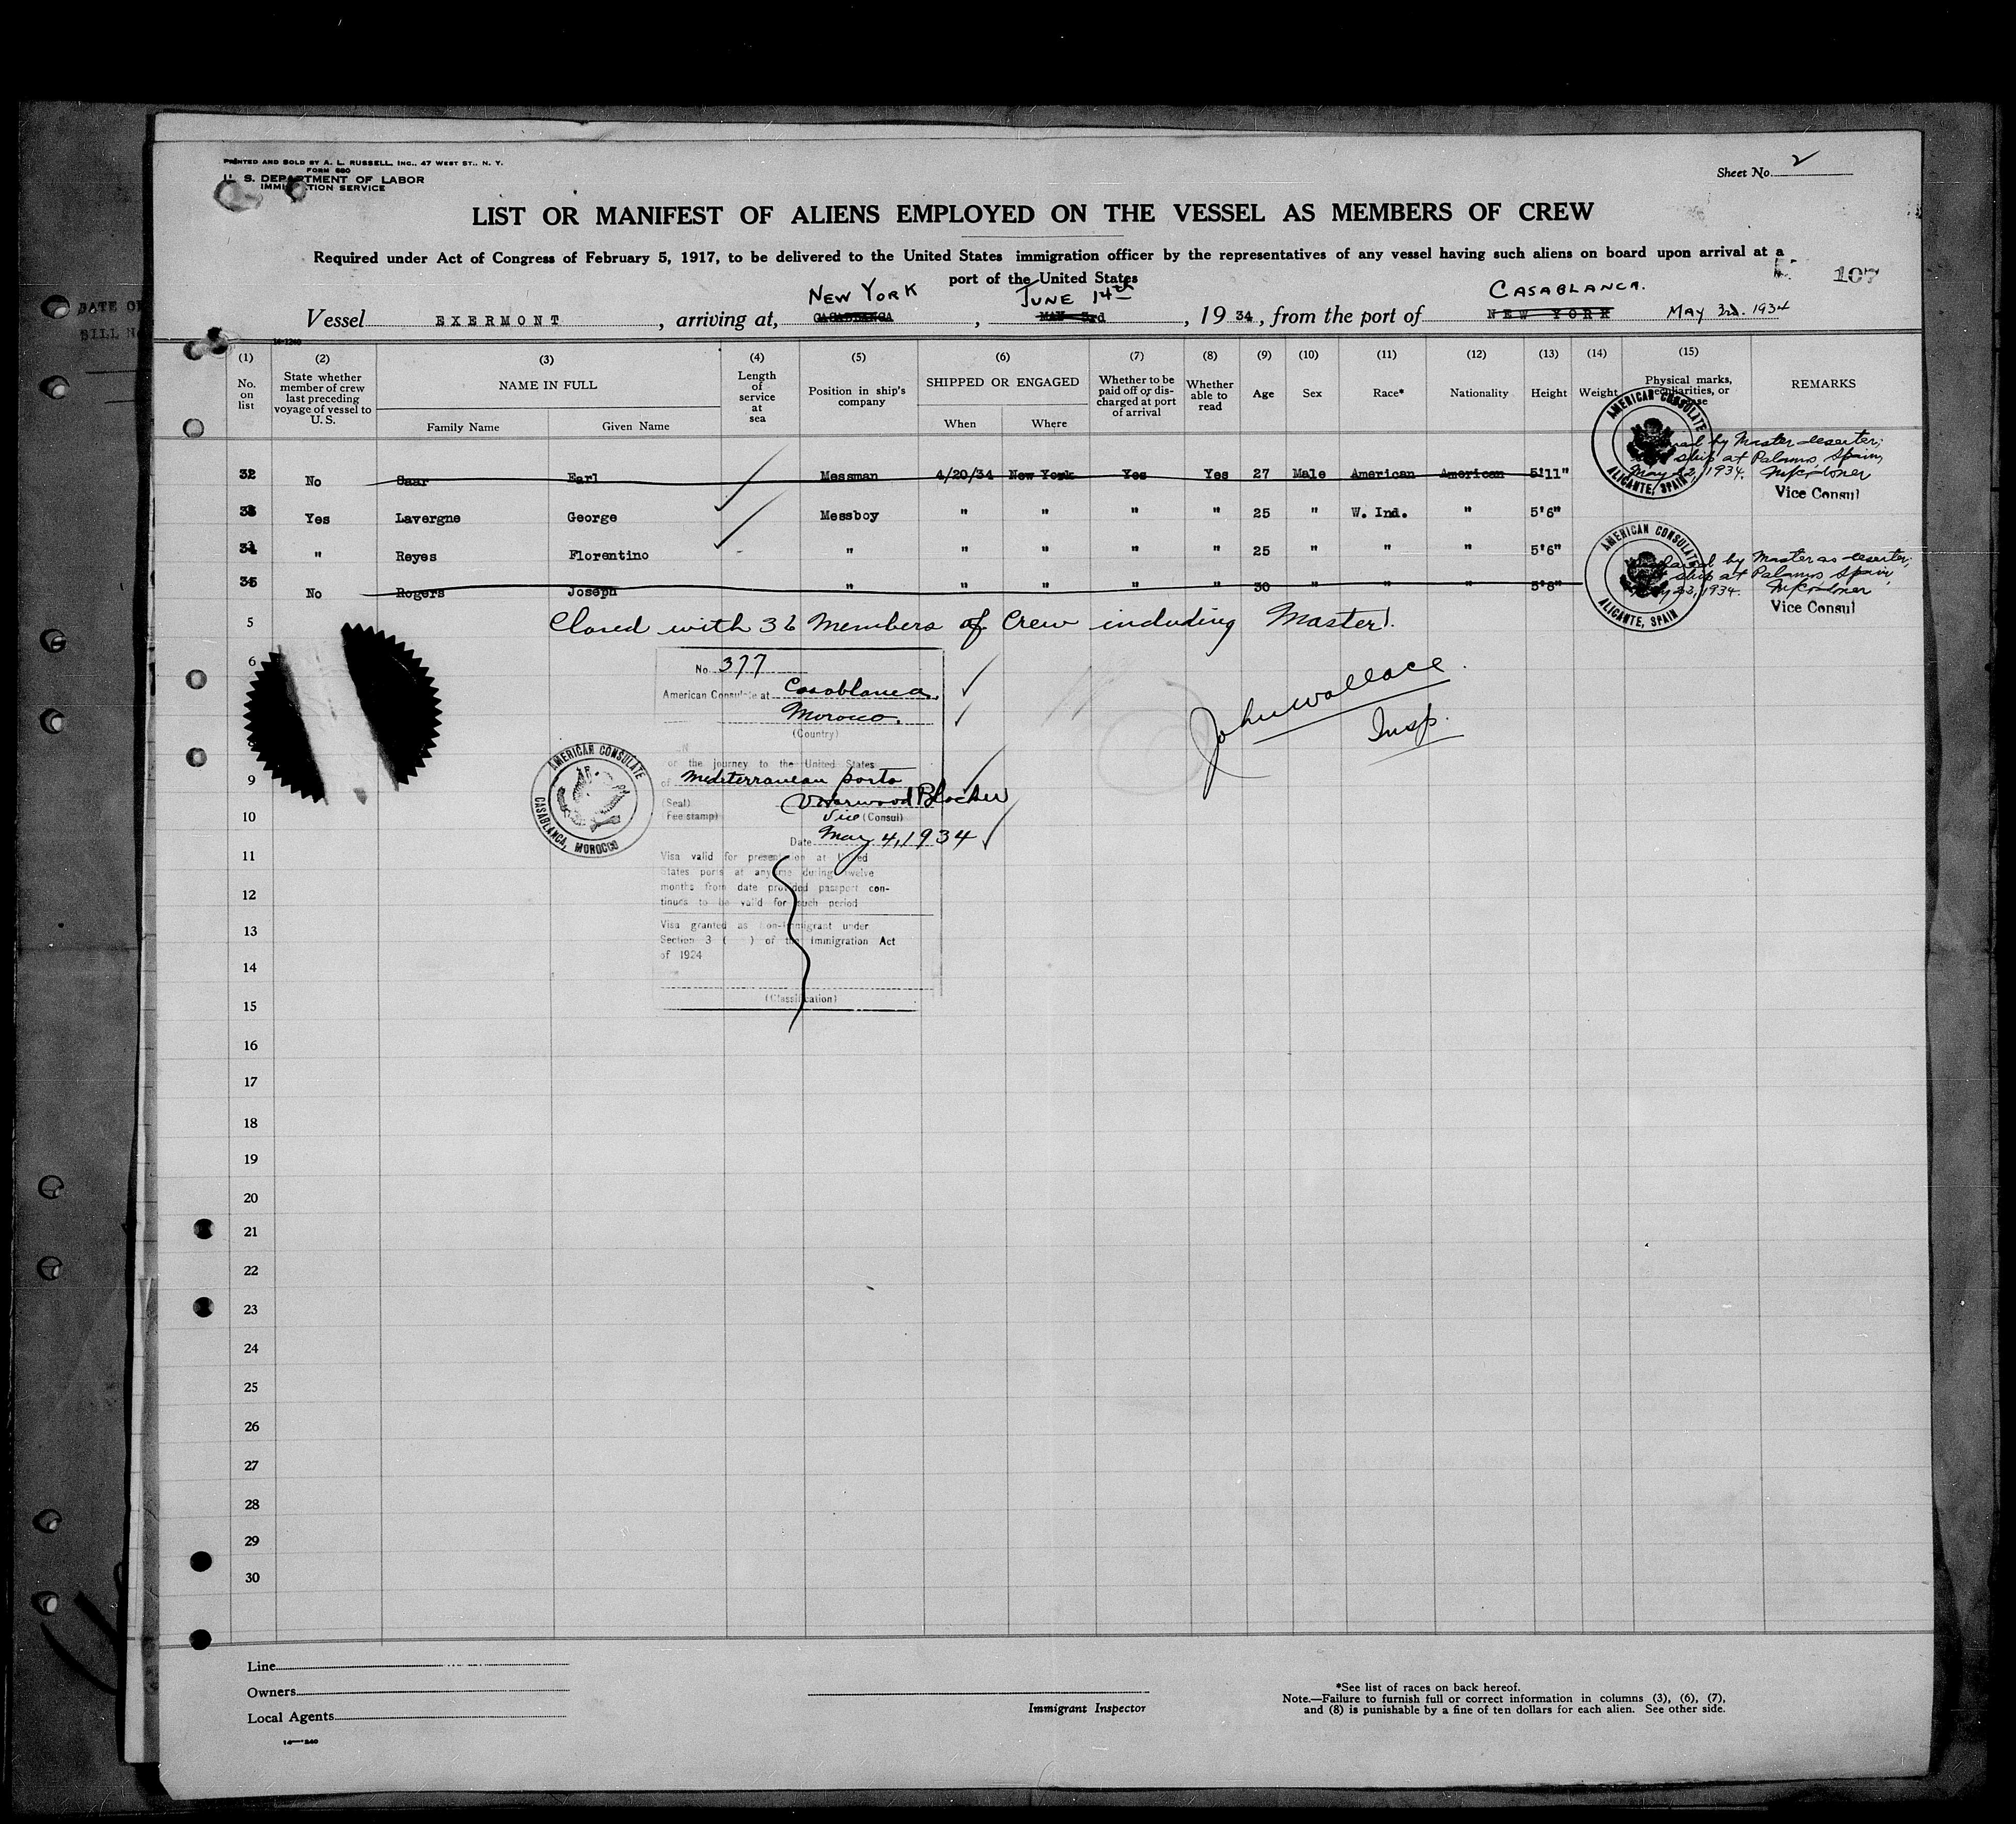 PRINTED AND SOLD BY A. L. RUSSELL, INC., 47 WEST ST., N. Y.
FORM 680
U. S. DEPARTMENT OF LABOR
IMMIGRATION SERVICE
Sheet No. 2
LIST OR MANIFEST OF ALIENS EMPLOYED ON THE VESSEL AS MEMBERS OF CREW
Required under Act of Congress of February 5, 1917, to be delivered to the United States immigration officer by the representatives of any vessel having such aliens on board upon arrival at a
port of the United States
107
NEW YORK JUNE 14th CASABLANCA.
Vessel EXERMONT, arriving at, CASABLANCA, MAY 3rd, 1934, from the port of NEW YORK MAY 3rd. 1934
DATE OF
BILL
(1) (2) (3) (4) (5) (6) (7) (8) (9) (10) (11) (12) (13) (14) (15)
No. on list
State whether member of crew last preceding voyage of vessel to U. S.
NAME IN FULL
Family Name Given Name
Length of service at sea
Position in ship's company
SHIPPED OR ENGAGED
When Where
Whether to be paid off or discharged at port of arrival
Whether able to read
Age Sex Race* Nationality Height Weight
Physical marks, peculiarities, or
REMARKS
32 No Saar Earl Messman 4/20/34 New York Yes Yes 27 Male American American 5'11"
by Master deserter;
ship at Palamos, Spain,
May 22, 1934.
Vice Consul
AMERICAN CONSULATE
ALICANTE, SPAIN
33 Yes Lavergne George Messboy " " " " 25 " W. Ind. " 5'6"
34 " Reyes Florentino " " " " " 25 " " " 5'6"
35 No Rogers Joseph " " " " " 30 " " " 5'8"
by Master as deserter;
ship at Palamos, Spain,
22, 1934.
Vice Consul
AMERICAN CONSULATE
ALICANTE, SPAIN
5 Closed with 36 Members of Crew including Master.
6
No. 377
American Consulate at Casablanca,
Morocco.
(Country)
John Wallace
Insp.
for the journey to the United States
9
of Mediterranean ports
(Seal)
Fee stamp)
10
Vice (Consul)
Date May 4, 1934
AMERICAN CONSULATE
CASABLANCA, MOROCCO
11
Visa valid for presentation at United
States ports at anytime during twelve
12
months from date provided passport con-
tinues to be valid for such period
13
Visa granted as non-immigrant under
Section 3 ( ) of the Immigration Act
of 1924
14
(Classification)
15
16
17
18
19
20
21
22
23
24
25
26
27
28
29
30
Line
Owners
Local Agents
Immigrant Inspector
*See list of races on back hereof.
Note.—Failure to furnish full or correct information in columns (3), (6), (7),
and (8) is punishable by a fine of ten dollars for each alien. See other side.